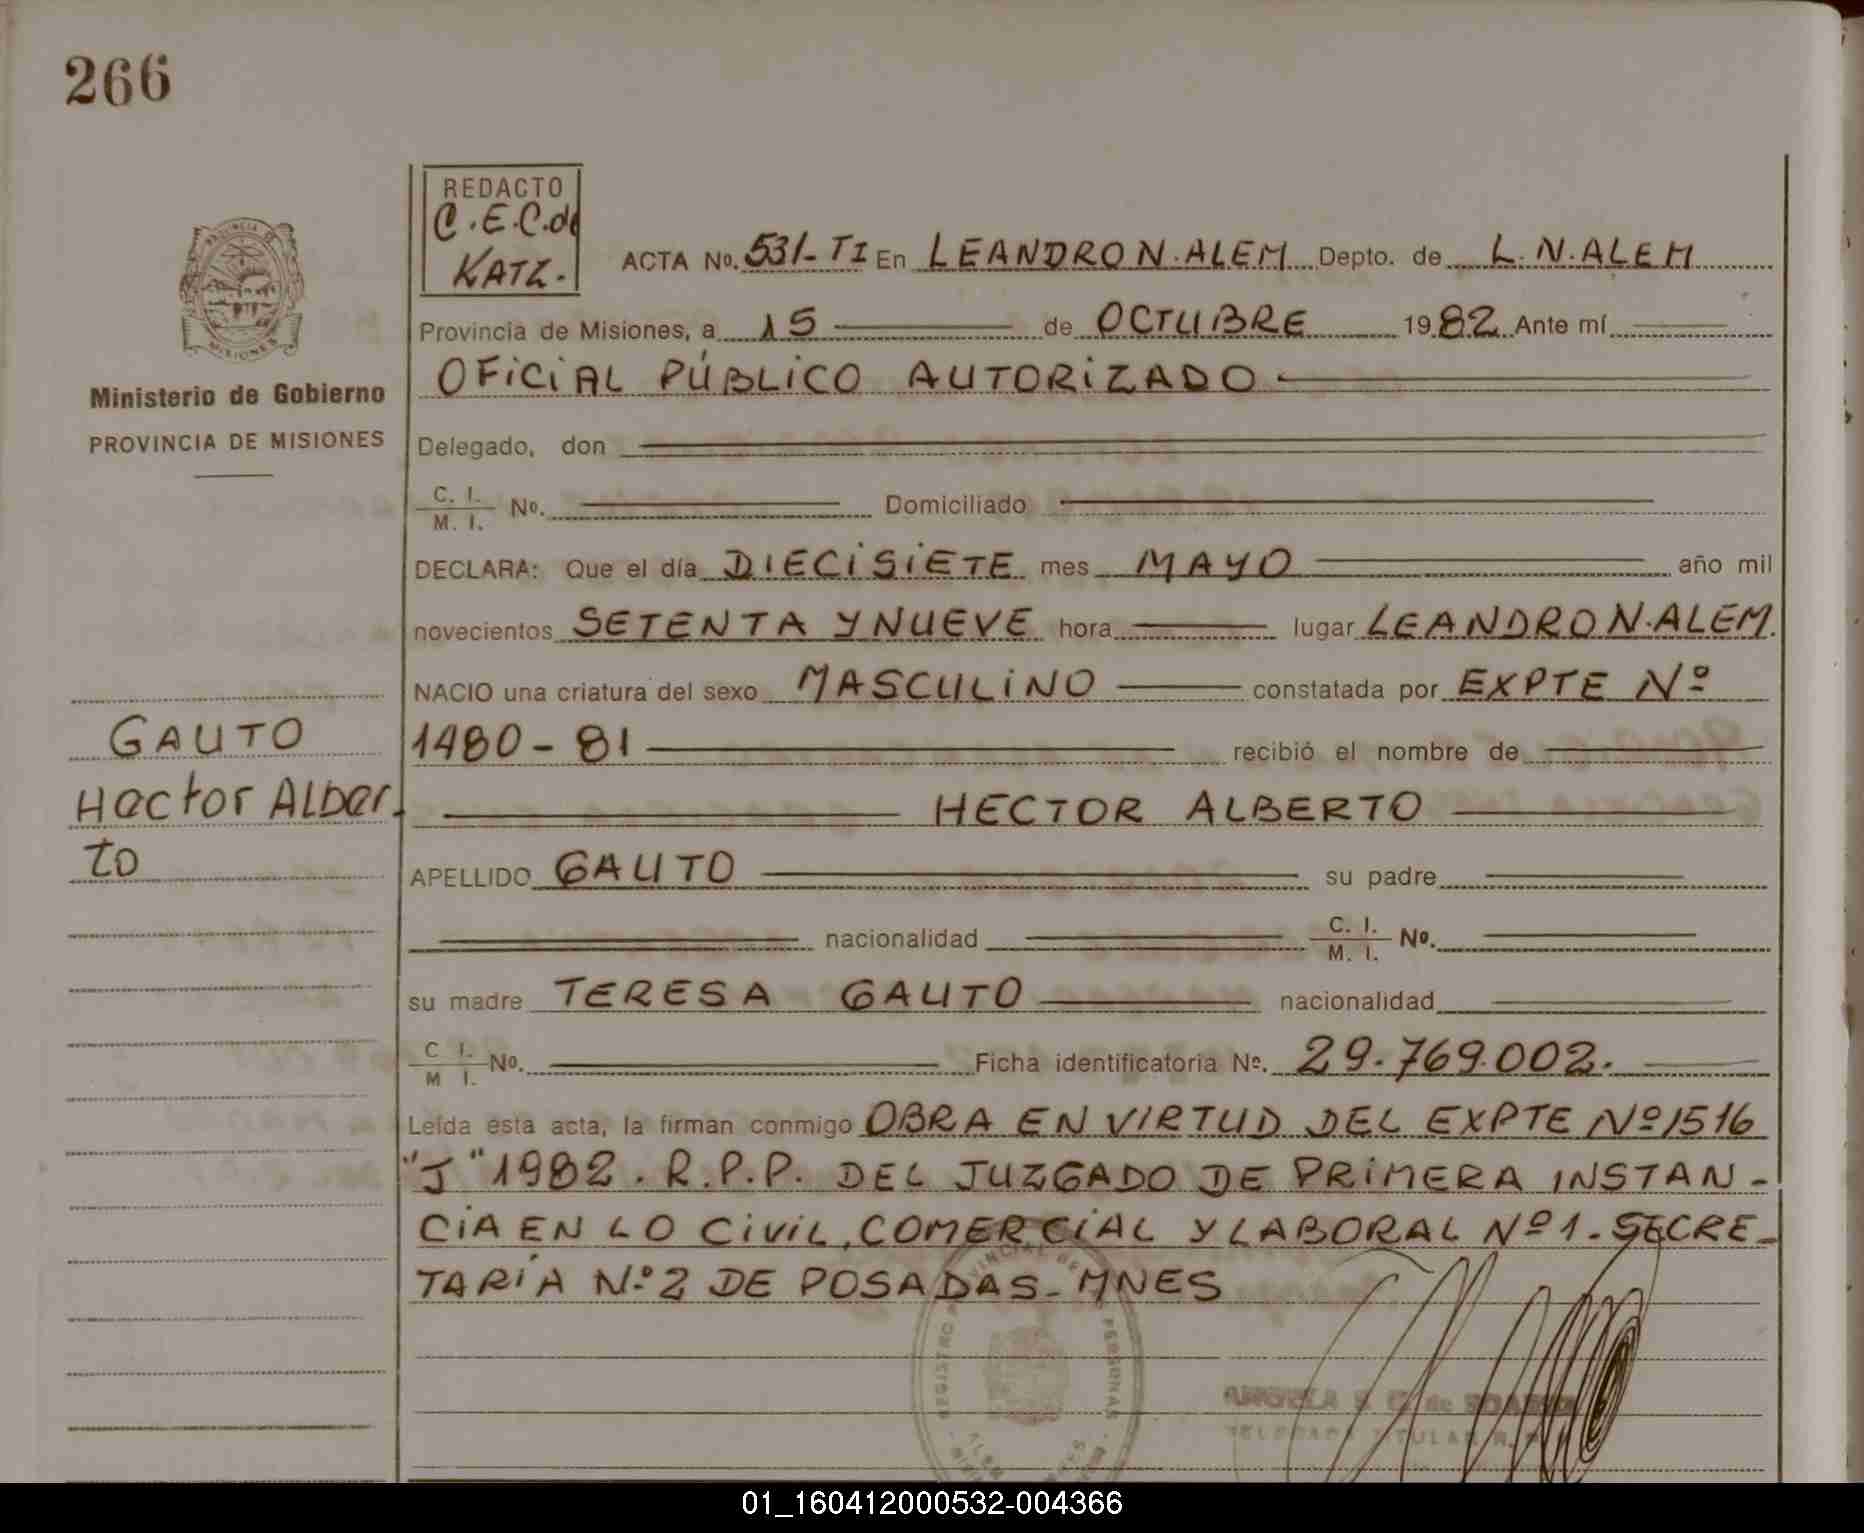 266
REDACTO
C.E.C.de
KATZ.
ACTA No. 531-TI En LEANDRO N. ALEM Depto. de L. N. ALEM
Provincia de Misiones, a 15 de OCTUBRE 1982 Ante mí
OFICIAL PÚBLICO AUTORIZADO
Ministerio de Gobierno
PROVINCIA DE MISIONES
PROVINCIA DE
MISIONES
Delegado, don
C. I.
M. I. No. Domiciliado
DECLARA: Que el día DIECISIETE mes MAYO año mil
novecientos SETENTA Y NUEVE hora lugar LEANDRO N. ALEM.
NACIO una criatura del sexo MASCULINO constatada por EXPTE Nº
1480-81 recibió el nombre de
GAUTO
Hector Alber-
to
HECTOR ALBERTO
APELLIDO GAUTO su padre
nacionalidad C. I.
M. I. No.
su madre TERESA GAUTO nacionalidad
C I.
M I. No. Ficha identificatoria Nº. 29.769.002.
Leída esta acta, la firman conmigo OBRA EN VIRTUD DEL EXPTE Nº 1516
"J" 1982. R.P.P. DEL JUZGADO DE PRIMERA INSTAN-
CIA EN LO CIVIL, COMERCIAL Y LABORAL Nº 1. SECRE-
TARÍA Nº 2 DE POSADAS-MNES
REGISTRO PROVINCIAL DE PERSONAS
01_160412000532-004366